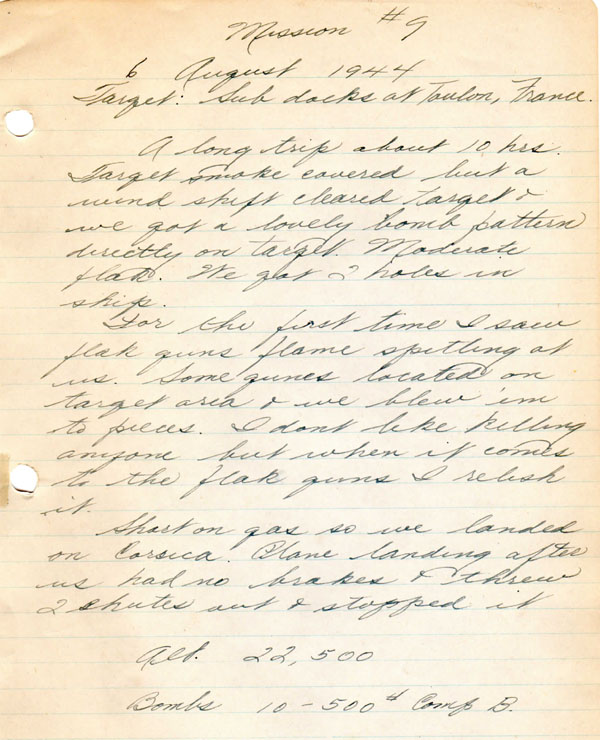 Mission #9
6 August 1944
Target: Sub docks at Toulon, France.
A long trip about 10 hrs.
Target smoke covered but a
wind shift cleared target &
we got a lovely bomb pattern
directly on target. Moderate
flak. We got 2 holes in
ship.
For the first time I saw
flak guns flame spitting at
us. Some gunes located on
target area & we blew 'em
to pieces. I dont like killing
anyone but when it comes
to the flak guns I relish
it.
Short on gas so we landed
on Corsica. Plane landing after
us had no brakes & threw
2 chutes out & stopped it
Alt. 22,500
Bombs 10-500# Comp B.